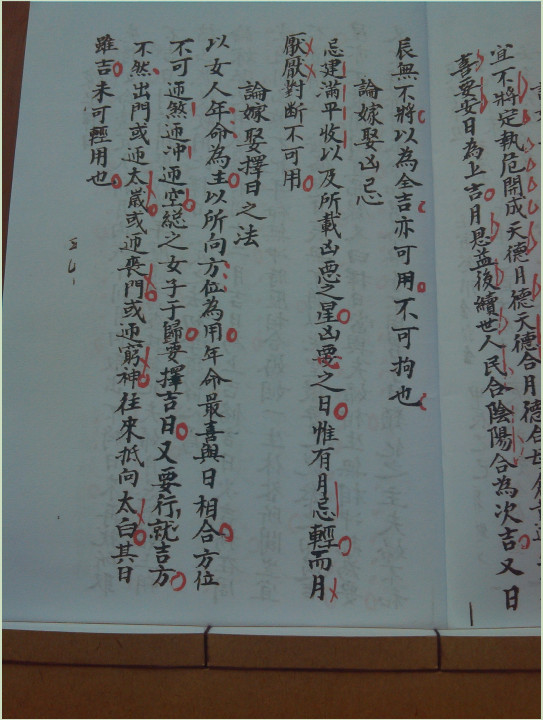 宜不將定執危開成天德月德天德合月德合
喜要安日為上吉月恩益後續世人民合陰陽合為次吉又日
辰無不將以為全吉亦可用不可拘也
論嫁娶凶忌
忌建滿平收以及所載凶惡之星凶要之日惟有月忌輕而月
厭厭對斷不可用
論嫁娶擇日之法
以女人年命為主以所向方位為用年命最喜與日相合方位
不可逥然逥冲逥空総之女子于歸要擇吉日又要行就吉方
不然出門或逥太歲或逥喪門或逥窮神往來抵向太白其日
雖吉未可輕用也